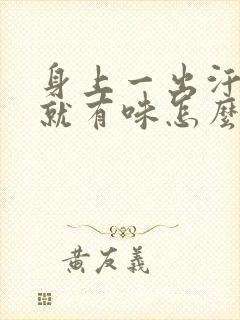 身上一出汗
就有味怎麼
黄友義